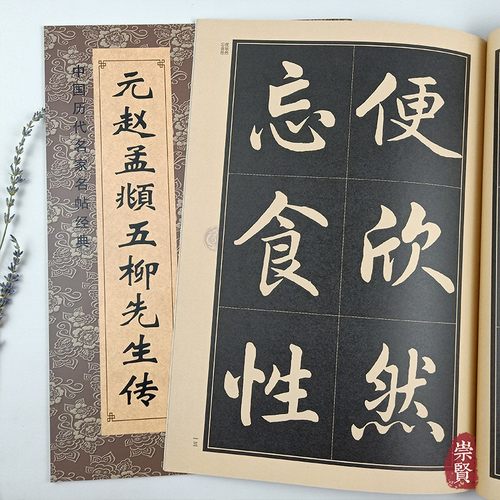 中国历代名家名帖经典
元赵孟頫五柳先生传
便欣然
忘食性
一三
崇賢